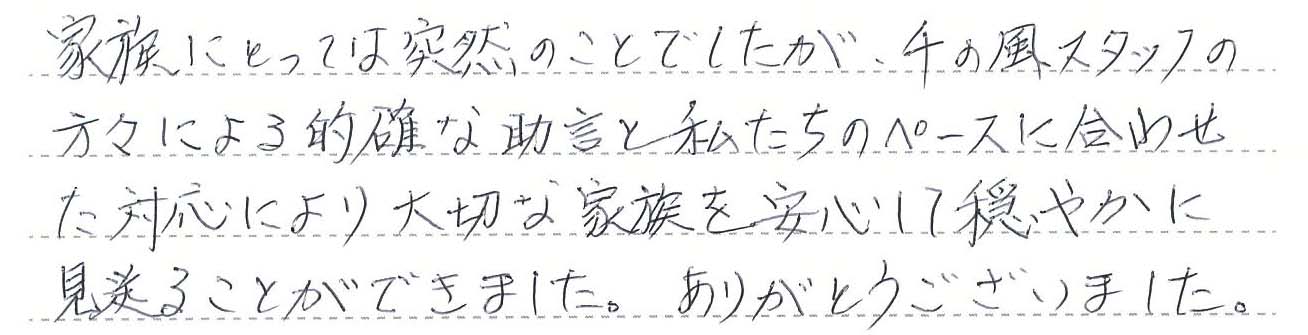 家族にとっては突然のことでしたが、千の風スタッフの
方々による的確な助言と私たちのペースに合わせ
た対応により大切な家族を安心して穏やかに
見送ることができました。ありがとうございました。